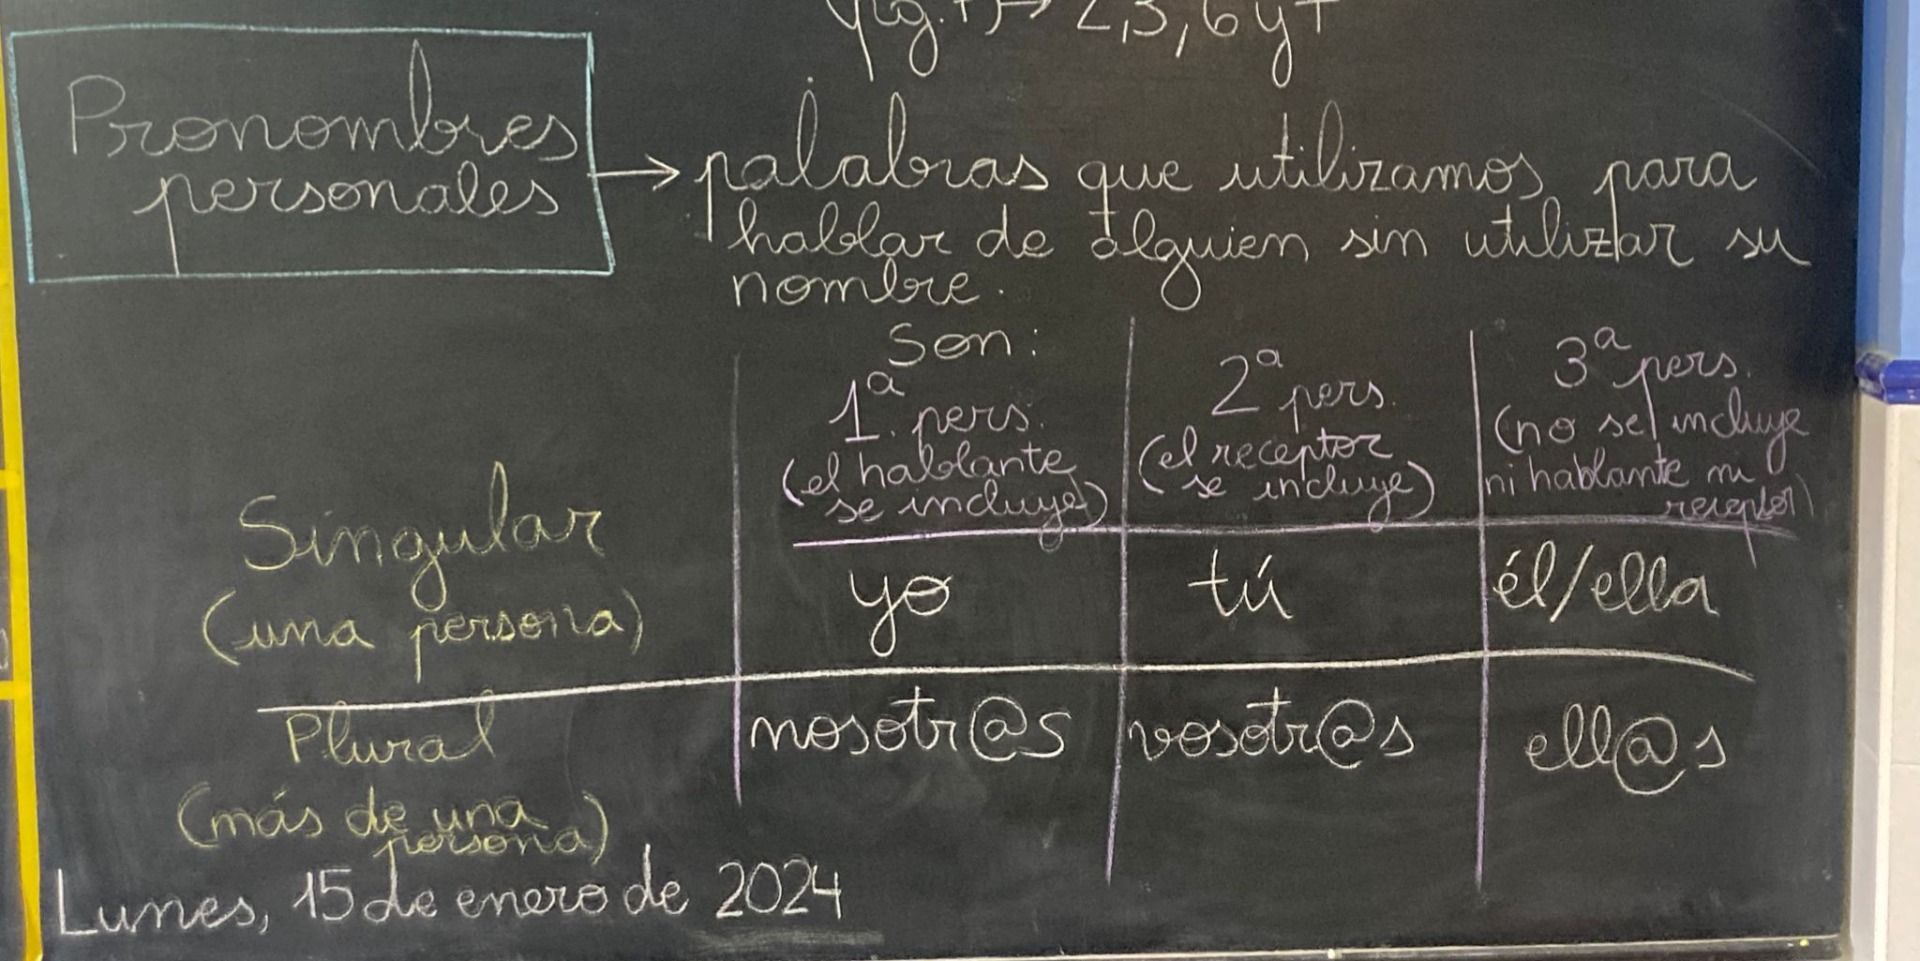 2, 3, 6 y 7
Pronombres
personales
→ palabras que utilizamos para
hablar de alguien sin utilizar su
nombre.
Son:
1ª pers.
(el hablante
se incluye)
2ª pers.
(el receptor
se incluye)
3ª pers.
(no se incluye
ni hablante ni
receptor)
Singular
(una persona)
yo
tú
él/ella
Plural
(más de una
persona)
nosotr@s
vosotr@s
ell@s
Lunes, 15 de enero de 2024